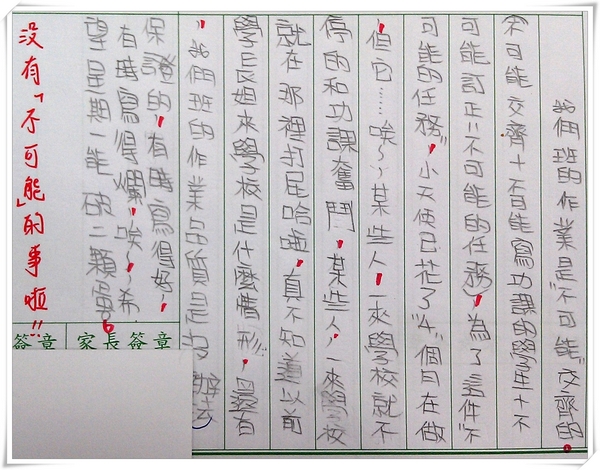 我們班的作業是"不可能"交齊的。
不可能交齊+不可能寫功課的學生+不
可能訂正=不可能的任務，為了這件"不
可能的任務"，小天使已花了"4"個月在做
，但它……唉～，某些人，一來學校就不
停的和功課奮鬥，某些人，一來學校
就在那裡打屁哈啦，真不知道以前
學長姐來學校是什麼情形，還有
，我們班的作業品質是 辦法
保證的，有時寫得好，
有時寫得爛，唉～，希
望星期一能破二顆蛋。
家長簽章
簽章
沒有「不可能」的事啦!!